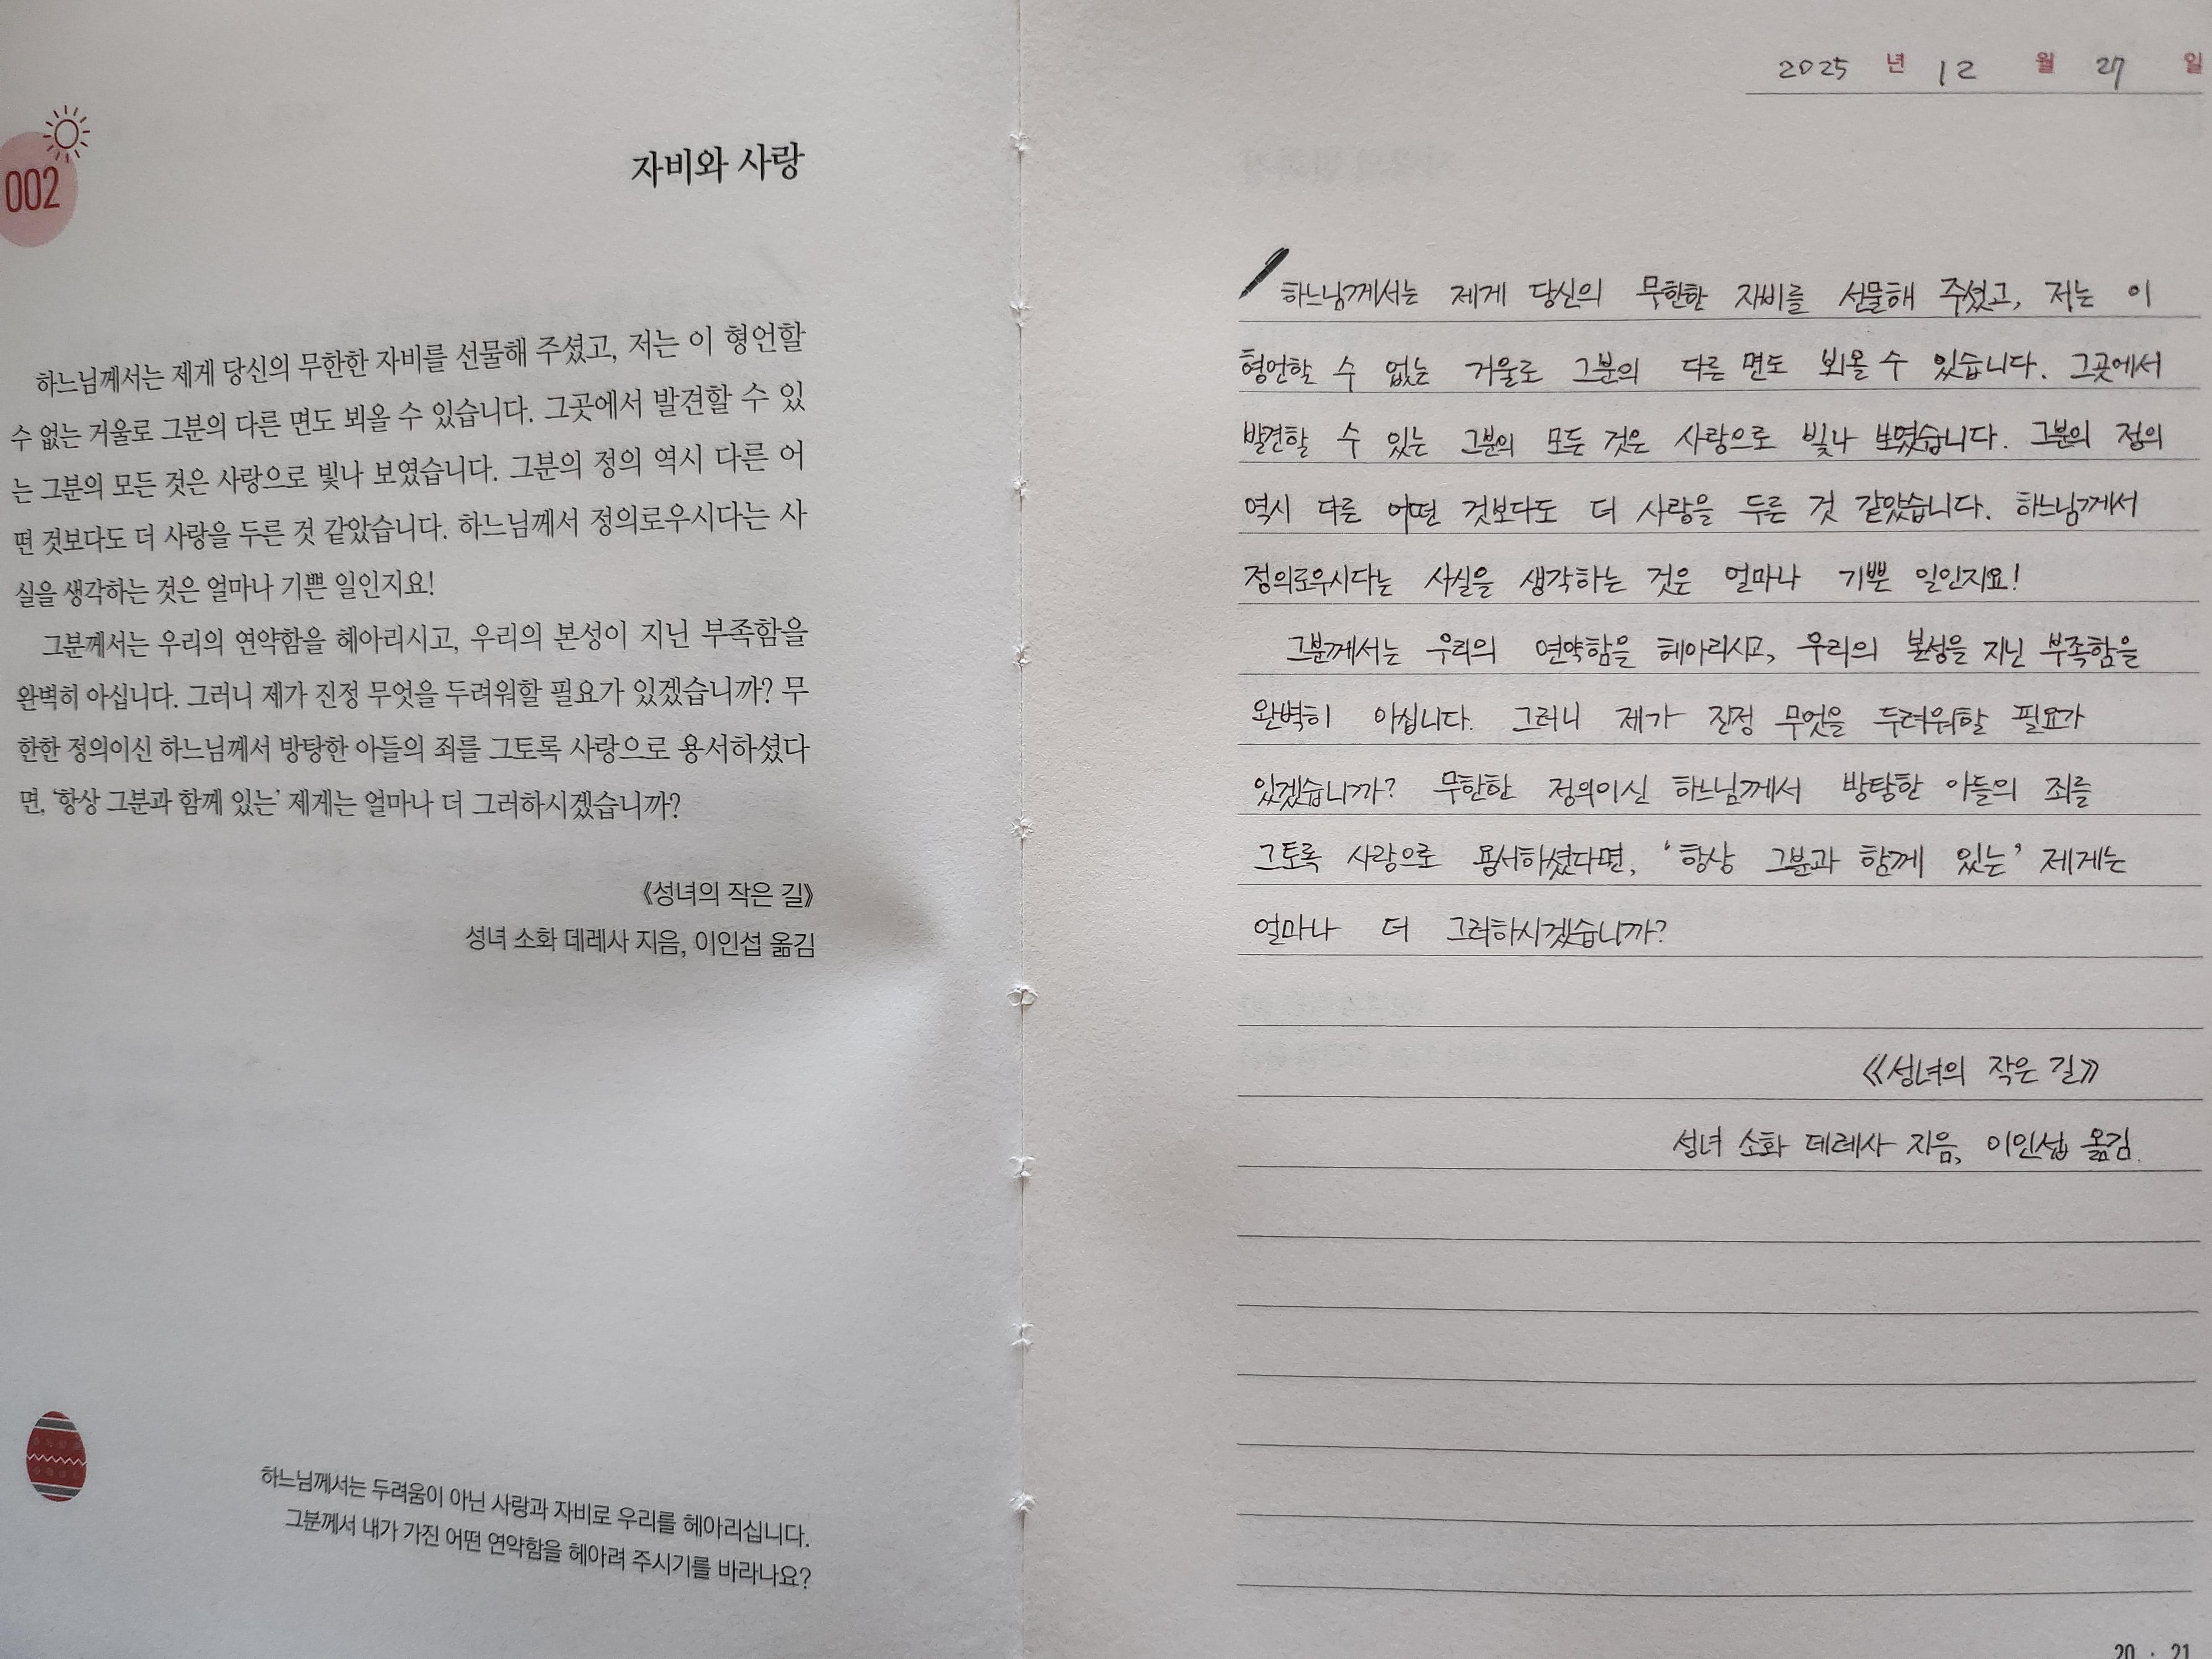 002
자비와 사랑
하느님께서는 제게 당신의 무한한 자비를 선물해 주셨고, 저는 이 형언할
수 없는 거울로 그분의 다른 면도 뵈올 수 있습니다. 그곳에서 발견할 수 있
는 그분의 모든 것은 사랑으로 빛나 보였습니다. 그분의 정의 역시 다른 어
떤 것보다도 더 사랑을 두른 것 같았습니다. 하느님께서 정의로우시다는 사
실을 생각하는 것은 얼마나 기쁜 일인지요!
그분께서는 우리의 연약함을 헤아리시고, 우리의 본성이 지닌 부족함을
완벽히 아십니다. 그러니 제가 진정 무엇을 두려워할 필요가 있겠습니까? 무
한한 정의이신 하느님께서 방탕한 아들의 죄를 그토록 사랑으로 용서하셨다
면, ‘항상 그분과 함께 있는’ 제게는 얼마나 더 그러하시겠습니까?
《성녀의 작은 길》
성녀 소화 데레사 지음, 이인섭 옮김
하느님께서는 두려움이 아닌 사랑과 자비로 우리를 헤아리십니다.
그분께서 내가 가진 어떤 연약함을 헤아려 주시기를 바라나요?
2025 년 12 월 27 일
하느님께서는 제게 당신의 무한한 자비를 선물해 주셨고, 저는 이
형언할 수 없는 거울로 그분의 다른 면도 뵈올 수 있습니다. 그곳에서
발견할 수 있는 그분의 모든 것은 사랑으로 빛나 보였습니다. 그분의 정의
역시 다른 어떤 것보다도 더 사랑을 두른 것 같았습니다. 하느님께서
정의로우시다는 사실을 생각하는 것은 얼마나 기쁜 일인지요!
그분께서는 우리의 연약함을 헤아리시고, 우리의 본성을 지닌 부족함을
완벽히 아십니다. 그러니 제가 진정 무엇을 두려워할 필요가
있겠습니까? 무한한 정의이신 하느님께서 방탕한 아들의 죄를
그토록 사랑으로 용서하셨다면, ‘항상 그분과 함께 있는’ 제게는
얼마나 더 그러하시겠습니까?
《성녀의 작은 길》
성녀 소화 데레사 지음, 이인섭 옮김.
20 · 21